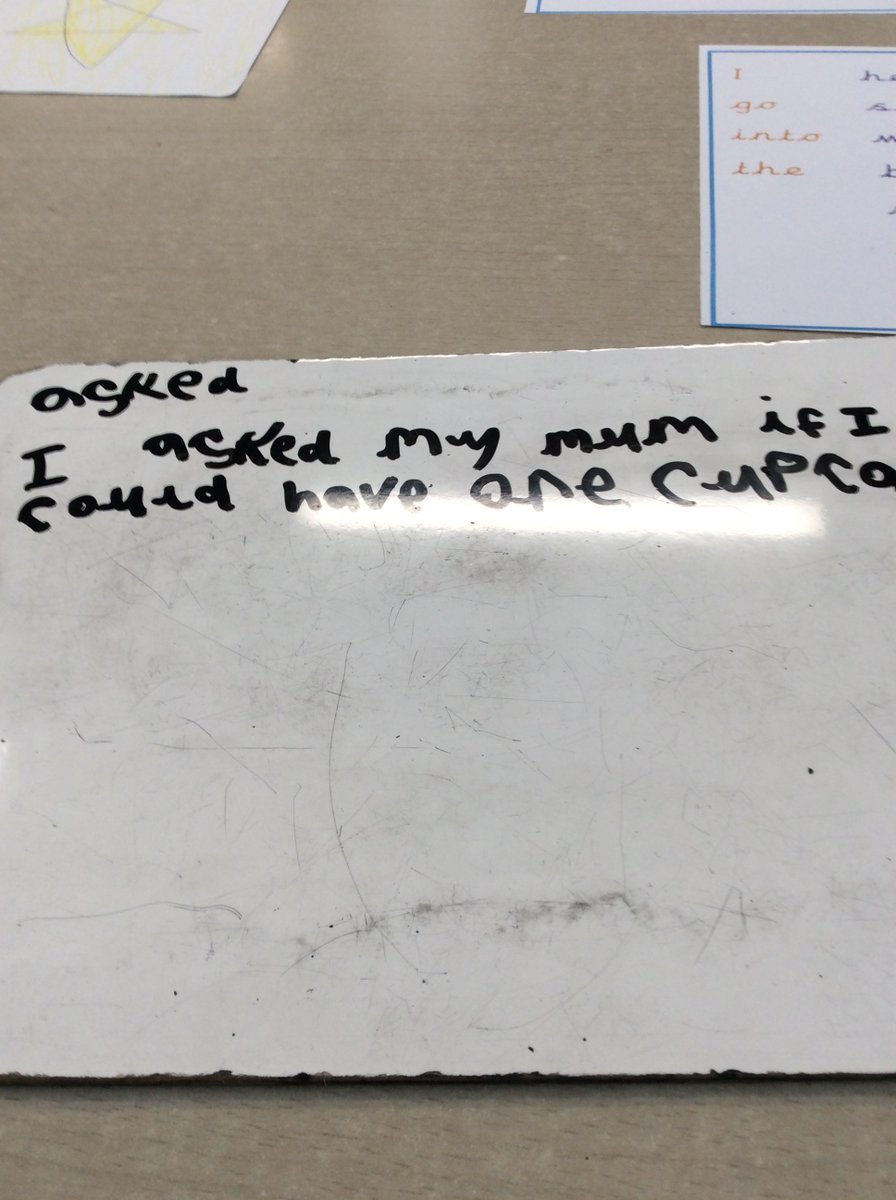 I he
go s
into
the
asked
I asked my mum if I
could have one cupca